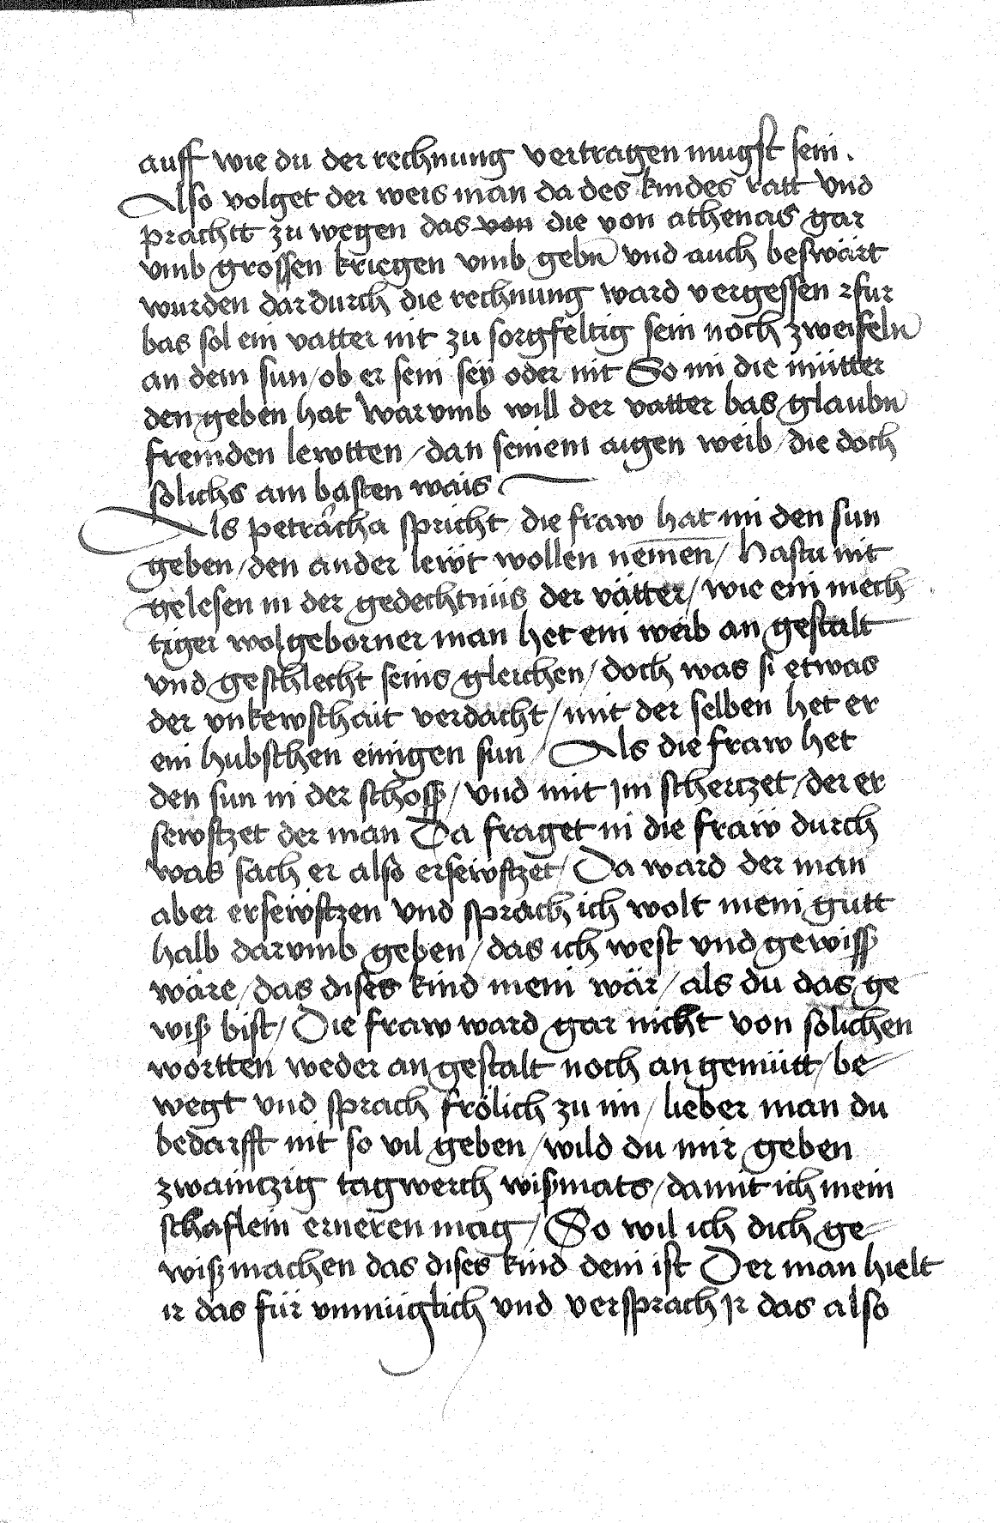 auff wie du der rechnung vertragen mugst sein.
Also volget der weis man da des kindes ratt vnd
prachtt zu wegen das von die von athenas gar
vmb grossen kriegen vmb gebn vnd auch beswärt
wurden dardurch die rechnung ward vergessen
bas sol ein vatter nit zu sorgfeltig sein noch zweifeln
an dem sun / ob er sein seÿ oder nit So im die mütter
den geben hat Warvmb will der vatter bas glaubn
fremden lewtten / dan seinem aigen weib / die doch
solichs am basten wais
Als petrarcha spricht / die fraw hat im den sun
geben / den ander lewt wollen nemen / Hastu nit
gelesen in der gedechtnüs der vätter / wie ein mech
tiger wolgeborner man het ein weib an gestalt
vnd geschlecht seins gleichen / doch was si etwas
der vnkewschait verdacht / mit der selben het er
ein hubschen einigen sun / Als die fraw het
den sun in der schoss / vnd mit Im schertzet / der er
sewftzet der man Da fraget in die fraw durch
was sach er also ersewftzet / Da ward der man
aber ersewftzen vnd sprach ich wolt mein gutt
halb darvmb geben / das ich west vnd gewiss
wäre / das dises kind mein wär / als du das ge
wiß bist / Die fraw ward gar nicht von solichen
wortten weder an gestalt noch an gemütt / be
wegt vnd sprach frölich zu im / lieber man du
bedarfft nit so vil geben / wild du mir geben
zwaintzig tagwerch wißmats / damit ich mein
schaflein erneren mag / So wil ich dich ge
wiß machen das dises kind dein ist Der man hielt
ir das für vnmüglich vnd versprach Ir das also